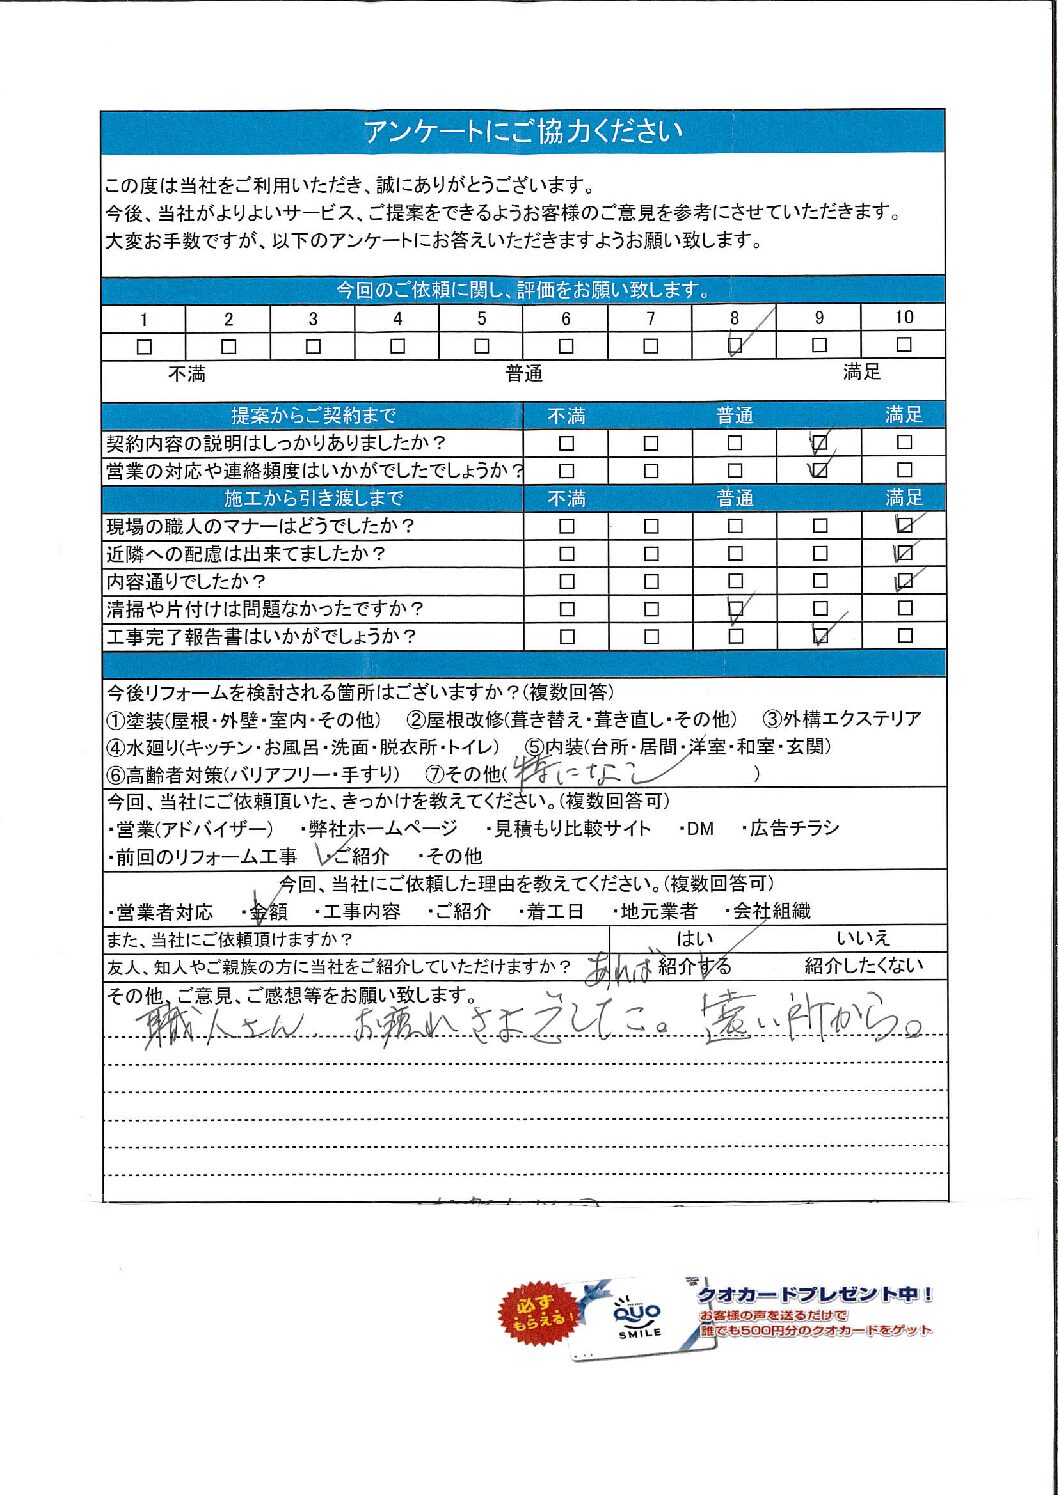 アンケートにご協力ください
この度は当社をご利用いただき、誠にありがとうございます。
今後、当社がよりよいサービス、ご提案をできるようお客様のご意見を参考にさせていただきます。
大変お手数ですが、以下のアンケートにお答えいただきますようお願い致します。
今回のご依頼に関し、評価をお願い致します。
1 2 3 4 5 6 7 8 9 10
□ □ □ □ □ □ □ ☑ □ □
不満 普通 満足
提案からご契約まで 不満 普通 満足
契約内容の説明はしっかりありましたか? □ □ □ ☑ □
営業の対応や連絡頻度はいかがでしたでしょうか? □ □ □ ☑ □
施工から引き渡しまで 不満 普通 満足
現場の職人のマナーはどうでしたか? □ □ □ □ ☑
近隣への配慮は出来てましたか? □ □ □ □ ☑
内容通りでしたか? □ □ □ □ ☑
清掃や片付けは問題なかったですか? □ □ ☑ □ □
工事完了報告書はいかがでしょうか? □ □ □ ☑ □
今後リフォームを検討される箇所はございますか?(複数回答)
①塗装(屋根・外壁・室内・その他) ②屋根改修(葺き替え・葺き直し・その他) ③外構エクステリア
④水廻り(キッチン・お風呂・洗面・脱衣所・トイレ) ⑤内装(台所・居間・洋室・和室・玄関)
⑥高齢者対策(バリアフリー・手すり) ⑦その他(特になし)
今回、当社にご依頼頂いた、きっかけを教えてください。(複数回答可)
・営業(アドバイザー) ・弊社ホームページ ・見積もり比較サイト ・DM ・広告チラシ
・前回のリフォーム工事 ✓・ご紹介 ・その他
今回、当社にご依頼した理由を教えてください。(複数回答可)
・営業者対応 ✓・金額 ・工事内容 ・ご紹介 ・着工日 ・地元業者 ・会社組織
また、当社にご依頼頂けますか? はい いいえ
友人、知人やご親族の方に当社をご紹介していただけますか? あれば 紹介する 紹介したくない
その他、ご意見、ご感想等をお願い致します。
職人さん、お疲れさまでした。遠い所から。
必ず
もらえる!
QUO
SMILE
クオカードプレゼント中!
お客様の声を送るだけで
誰でも500円分のクオカードをゲット